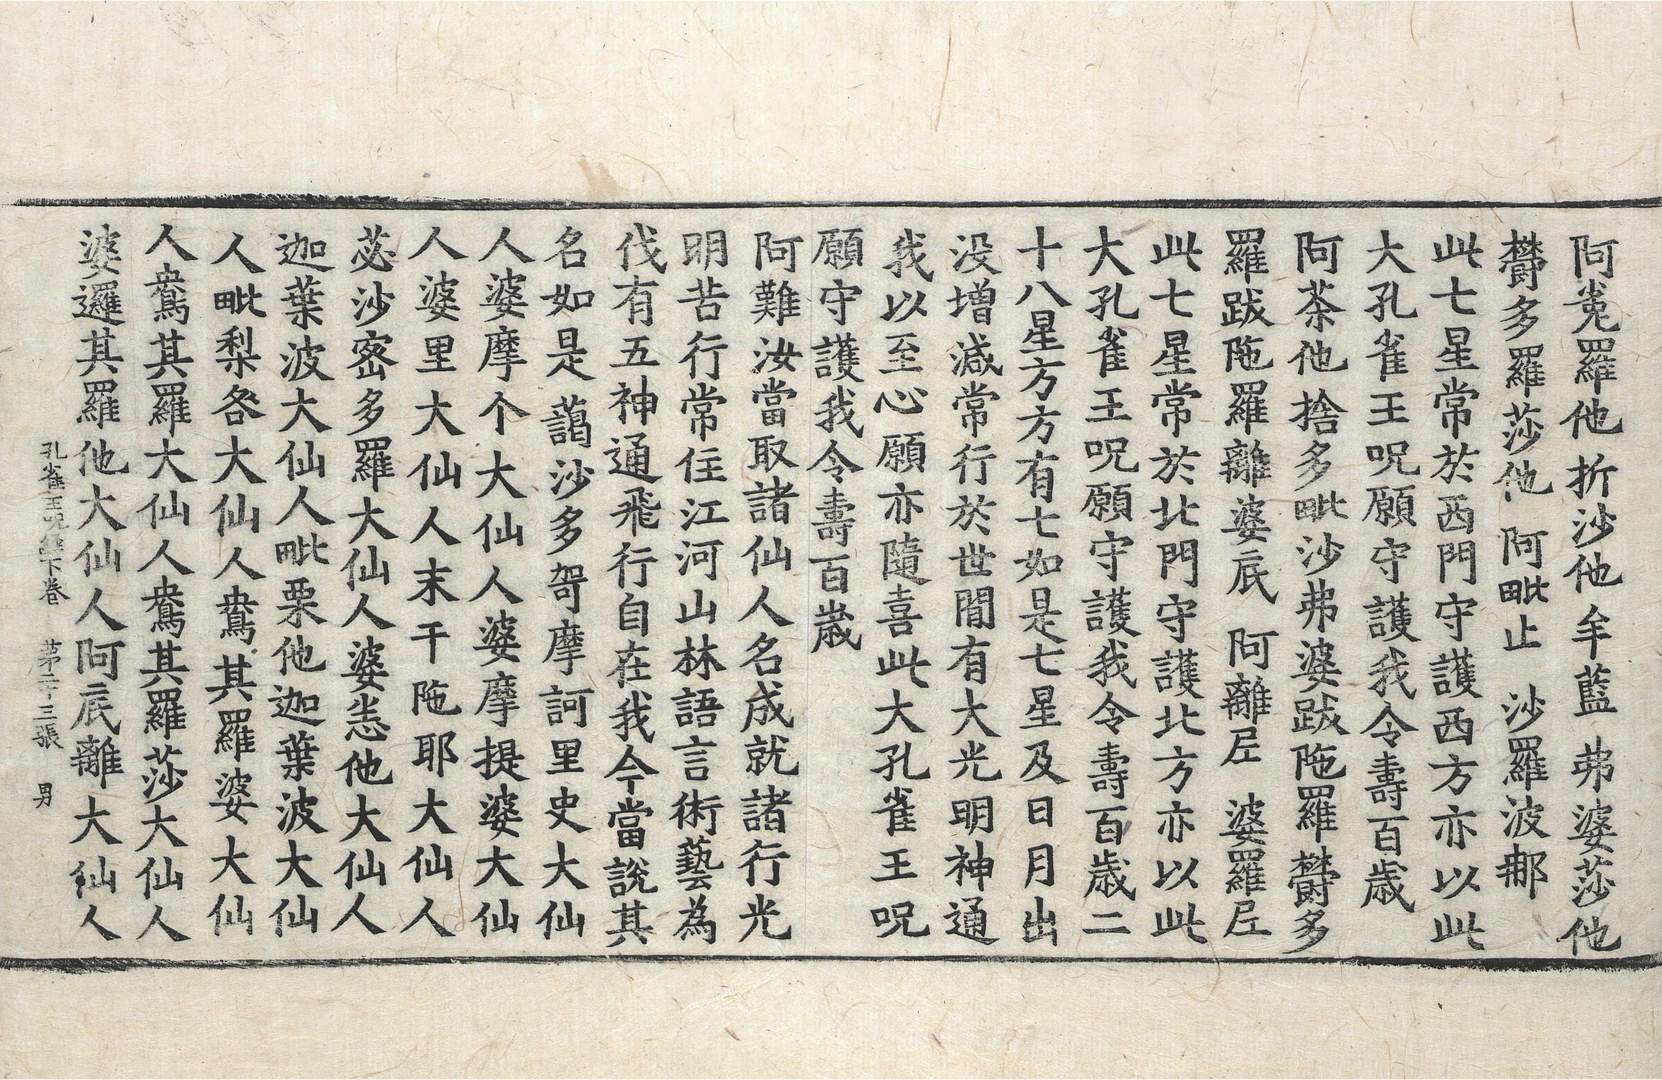 阿㝹羅他折沙他牟藍　弗婆莎他
欝多羅莎他　阿毗止　沙羅波郍
此七星常於西門守護西方亦以此
大孔雀王呪願守護我令壽百歳
阿荼他捨多毗沙弗婆跋陁羅欝多
羅跋陁羅離婆底　阿離𡰱　婆羅𡰱
此七星常於北門守護北方亦以此
大孔雀王呪願守護我令壽百歳二
十八星方方有七如是七星及日月出
没增減常行於世閒有大光明神通
我以至心願亦隨喜此大孔雀王呪
願守護我令壽百歳
阿難汝當取諸仙人名成就諸行光
明苦行常住江河山林語言術藝為
伐有五神通飛行自在我今當說其
名如是藹沙多哿摩訶里史大仙
人婆摩个大仙人婆摩提婆大仙
人婆里大仙人末干陁耶大仙人
苾沙宻多羅大仙人婆恙他大仙人
迦葉波大仙人毗栗他迦葉波大仙
人毗梨咎大仙人鴦其羅婆大仙
人鴦其羅大仙人鴦其羅莎大仙人
婆邏其羅他大仙人阿底離大仙人
孔雀王呪經下卷　第二十三張　男